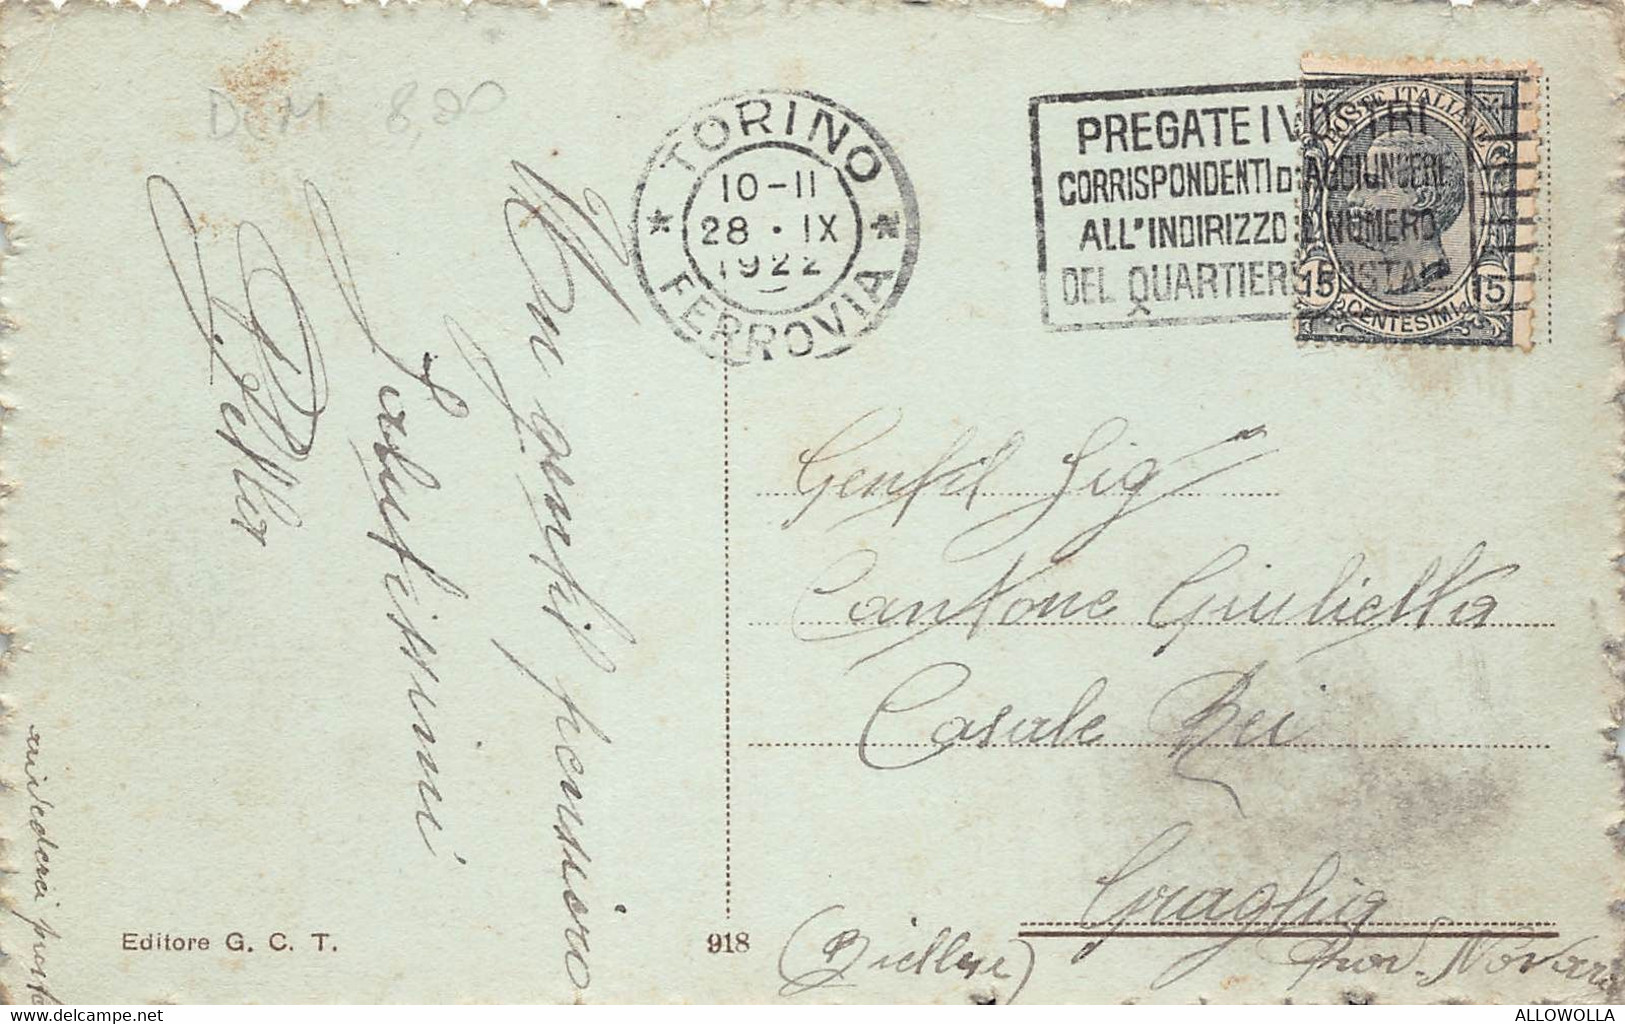 DCM 8,20
TORINO
10-11
28 · IX
1922
FERROVIA
PREGATE I VOSTRI
CORRISPONDENTI DI AGGIUNGERE
ALL'INDIRIZZO IL NUMERO
DEL QUARTIERE POSTALE
POSTE ITALIANE
15 15
CENTESIMI
Un gentil pensiero
Salutissimi
arivederci presto
Gentil Sig
Cantone Giulietta
Casale Bei
Graglia
(Biellese) Prov. Novara
Editore G. C. T.
918
delcampe.net
ALLOWOLLA